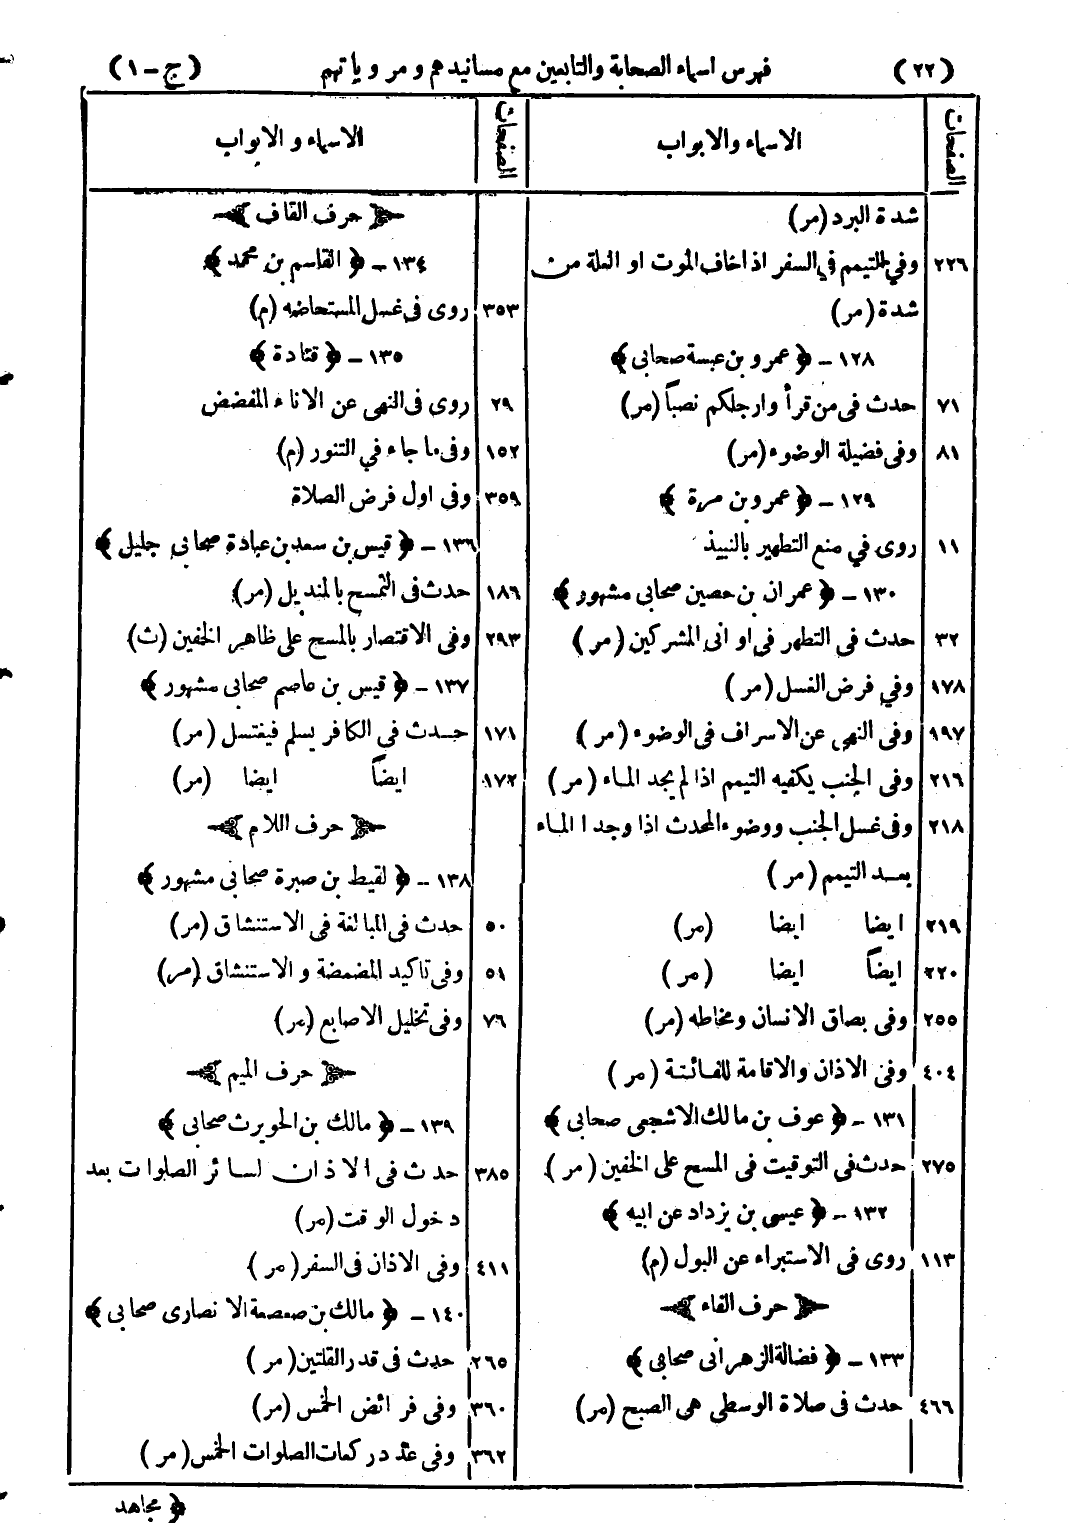 (٢٢) فهرس اسماء الصحابة والتابعين مع مسانيدهم و مروياتهم (ج-١)
الصفحات الاسماء والابواب
شدة البرد (مر)
٢٢٦ وفى المتيمم فى السفر اذا خاف الموت او العلة من
شدة (مر)
١٢٨ - ﴿ عمرو بن عبسة صحابى ﴾
٧١ حدث فى من قرأ وارجلكم نصباً (مر)
٨١ وفى فضيلة الوضوء (مر)
١٢٩ - ﴿ عمرو بن مرة ﴾
١١ روى في منع التطهير بالنبيذ
١٣٠ - ﴿ عمران بن حصين صحابى مشهور ﴾
٣٢ حدث فى التطهر فى اوانى المشركين (مر)
١٧٨ وفي فرض الغسل (مر)
١٩٧ وفى النهى عن الاسراف فى الوضوء (مر)
٢١٦ وفى الجنب يكفيه التيمم اذا لم يجد الماء (مر)
٢١٨ وفى غسل الجنب ووضوء المحدث اذا وجدا الماء
بعد التيمم (مر)
٢١٩ ايضا ايضا (مر)
٢٢٠ ايضاً ايضا (مر)
٢٥٥ وفى بصاق الانسان ومخاطه (مر)
٤٠٤ وفى الاذان والاقامة للفائتة (مر)
١٣١ - ﴿ عوف بن مالك الاشجعى صحابى ﴾
٢٧٥ حدث فى التوقيت فى المسح على الخفين (مر)
١٣٢ - ﴿ عيسى بن يزداد عن ابيه ﴾
١١٣ روى فى الاستبراء عن البول (م)
حرف الفاء
١٣٣ - ﴿ فضالة الزهرانى صحابى ﴾
٤٦٦ حدث فى صلاة الوسطى هى الصبح (مر)
الصفحات الاسماء و الابواب
حرف القاف
١٣٤ - ﴿ القاسم بن محمد ﴾
٣٥٣ روى فى غسل المستحاضه (م)
١٣٥ - ﴿ قتادة ﴾
٢٩ روى فى النهى عن الاناء المفضض
١٥٢ وفى ما جاء في التنور (م)
٣٥٩ وفى اول فرض الصلاة
١٣٦ - ﴿ قيس بن سعد بن عبادة صحابى جليل ﴾
١٨٦ حدث فى التمسح بالمنديل (مر)
٢٩٣ وفى الاقتصار بالمسح على ظاهر الخفين (ث)
١٣٧ - ﴿ قيس بن عاصم صحابى مشهور ﴾
١٧١ حدث فى الكافر يسلم فيغتسل (مر)
١٧٢ ايضاً ايضا (مر)
حرف اللام
١٣٨ - ﴿ لقيط بن صبرة صحابى مشهور ﴾
٥٠ حدث فى المبالغة فى الاستنشاق (مر)
٥١ وفى تاكيد المضمضة و الاستنشاق (مر)
٧٦ وفى تخليل الاصابع (مر)
حرف الميم
١٣٩ - ﴿ مالك بن الحويرث صحابى ﴾
٣٨٥ حدث فى الاذان لسائر الصلوات بعد
دخول الوقت (مر)
٤١١ وفى الاذان فى السفر (مر)
١٤٠ - ﴿ مالك بن صعصعة الانصارى صحابى ﴾
٢٦٥ حدث فى قدر القلتين (مر)
٣٦٠ وفى فرائض الخمس (مر)
٣٦٢ وفى عدد ركعات الصلوات الخمس (مر)
﴿ مجاهد